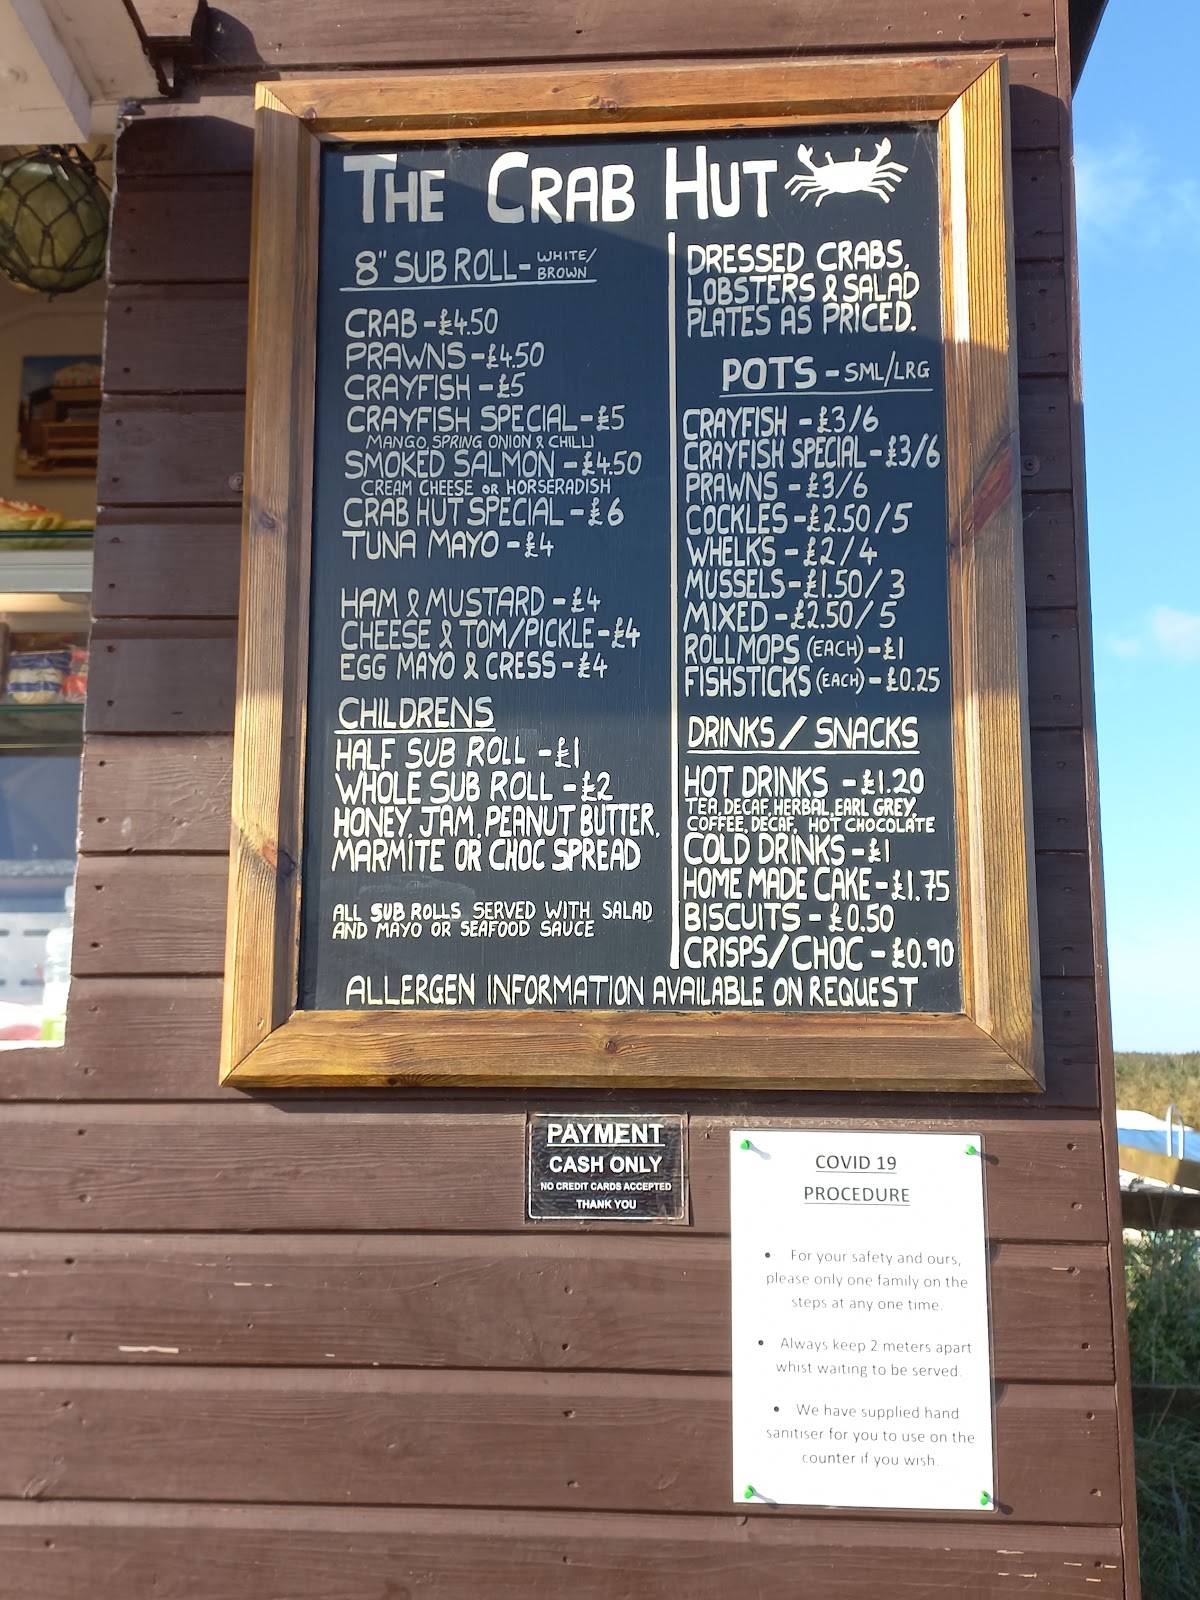 THE CRAB HUT
8" SUB ROLL- WHITE/
BROWN
CRAB - £4.50
PRAWNS - £4.50
CRAYFISH - £5
CRAYFISH SPECIAL - £5
MANGO, SPRING ONION & CHILLI
SMOKED SALMON - £4.50
CREAM CHEESE OR HORSERADISH
CRAB HUT SPECIAL - £6
TUNA MAYO - £4
HAM & MUSTARD - £4
CHEESE & TOM/PICKLE - £4
EGG MAYO & CRESS - £4
CHILDRENS
HALF SUB ROLL - £1
WHOLE SUB ROLL - £2
HONEY, JAM, PEANUT BUTTER,
MARMITE OR CHOC SPREAD
ALL SUB ROLLS SERVED WITH SALAD
AND MAYO OR SEAFOOD SAUCE
DRESSED CRABS,
LOBSTERS & SALAD
PLATES AS PRICED.
POTS - SML/LRG
CRAYFISH - £3/6
CRAYFISH SPECIAL - £3/6
PRAWNS - £3/6
COCKLES - £2.50/5
WHELKS - £2/4
MUSSELS - £1.50/3
MIXED - £2.50/5
ROLLMOPS (EACH) - £1
FISHSTICKS (EACH) - £0.25
DRINKS / SNACKS
HOT DRINKS - £1.20
TEA, DECAF, HERBAL, EARL GREY,
COFFEE, DECAF, HOT CHOCOLATE
COLD DRINKS - £1
HOME MADE CAKE - £1.75
BISCUITS - £0.50
CRISPS/CHOC - £0.90
ALLERGEN INFORMATION AVAILABLE ON REQUEST
PAYMENT
CASH ONLY
NO CREDIT CARDS ACCEPTED
THANK YOU
COVID 19
PROCEDURE
• For your safety and ours,
please only one family on the
steps at any one time.
• Always keep 2 meters apart
whist waiting to be served.
• We have supplied hand
sanitiser for you to use on the
counter if you wish.